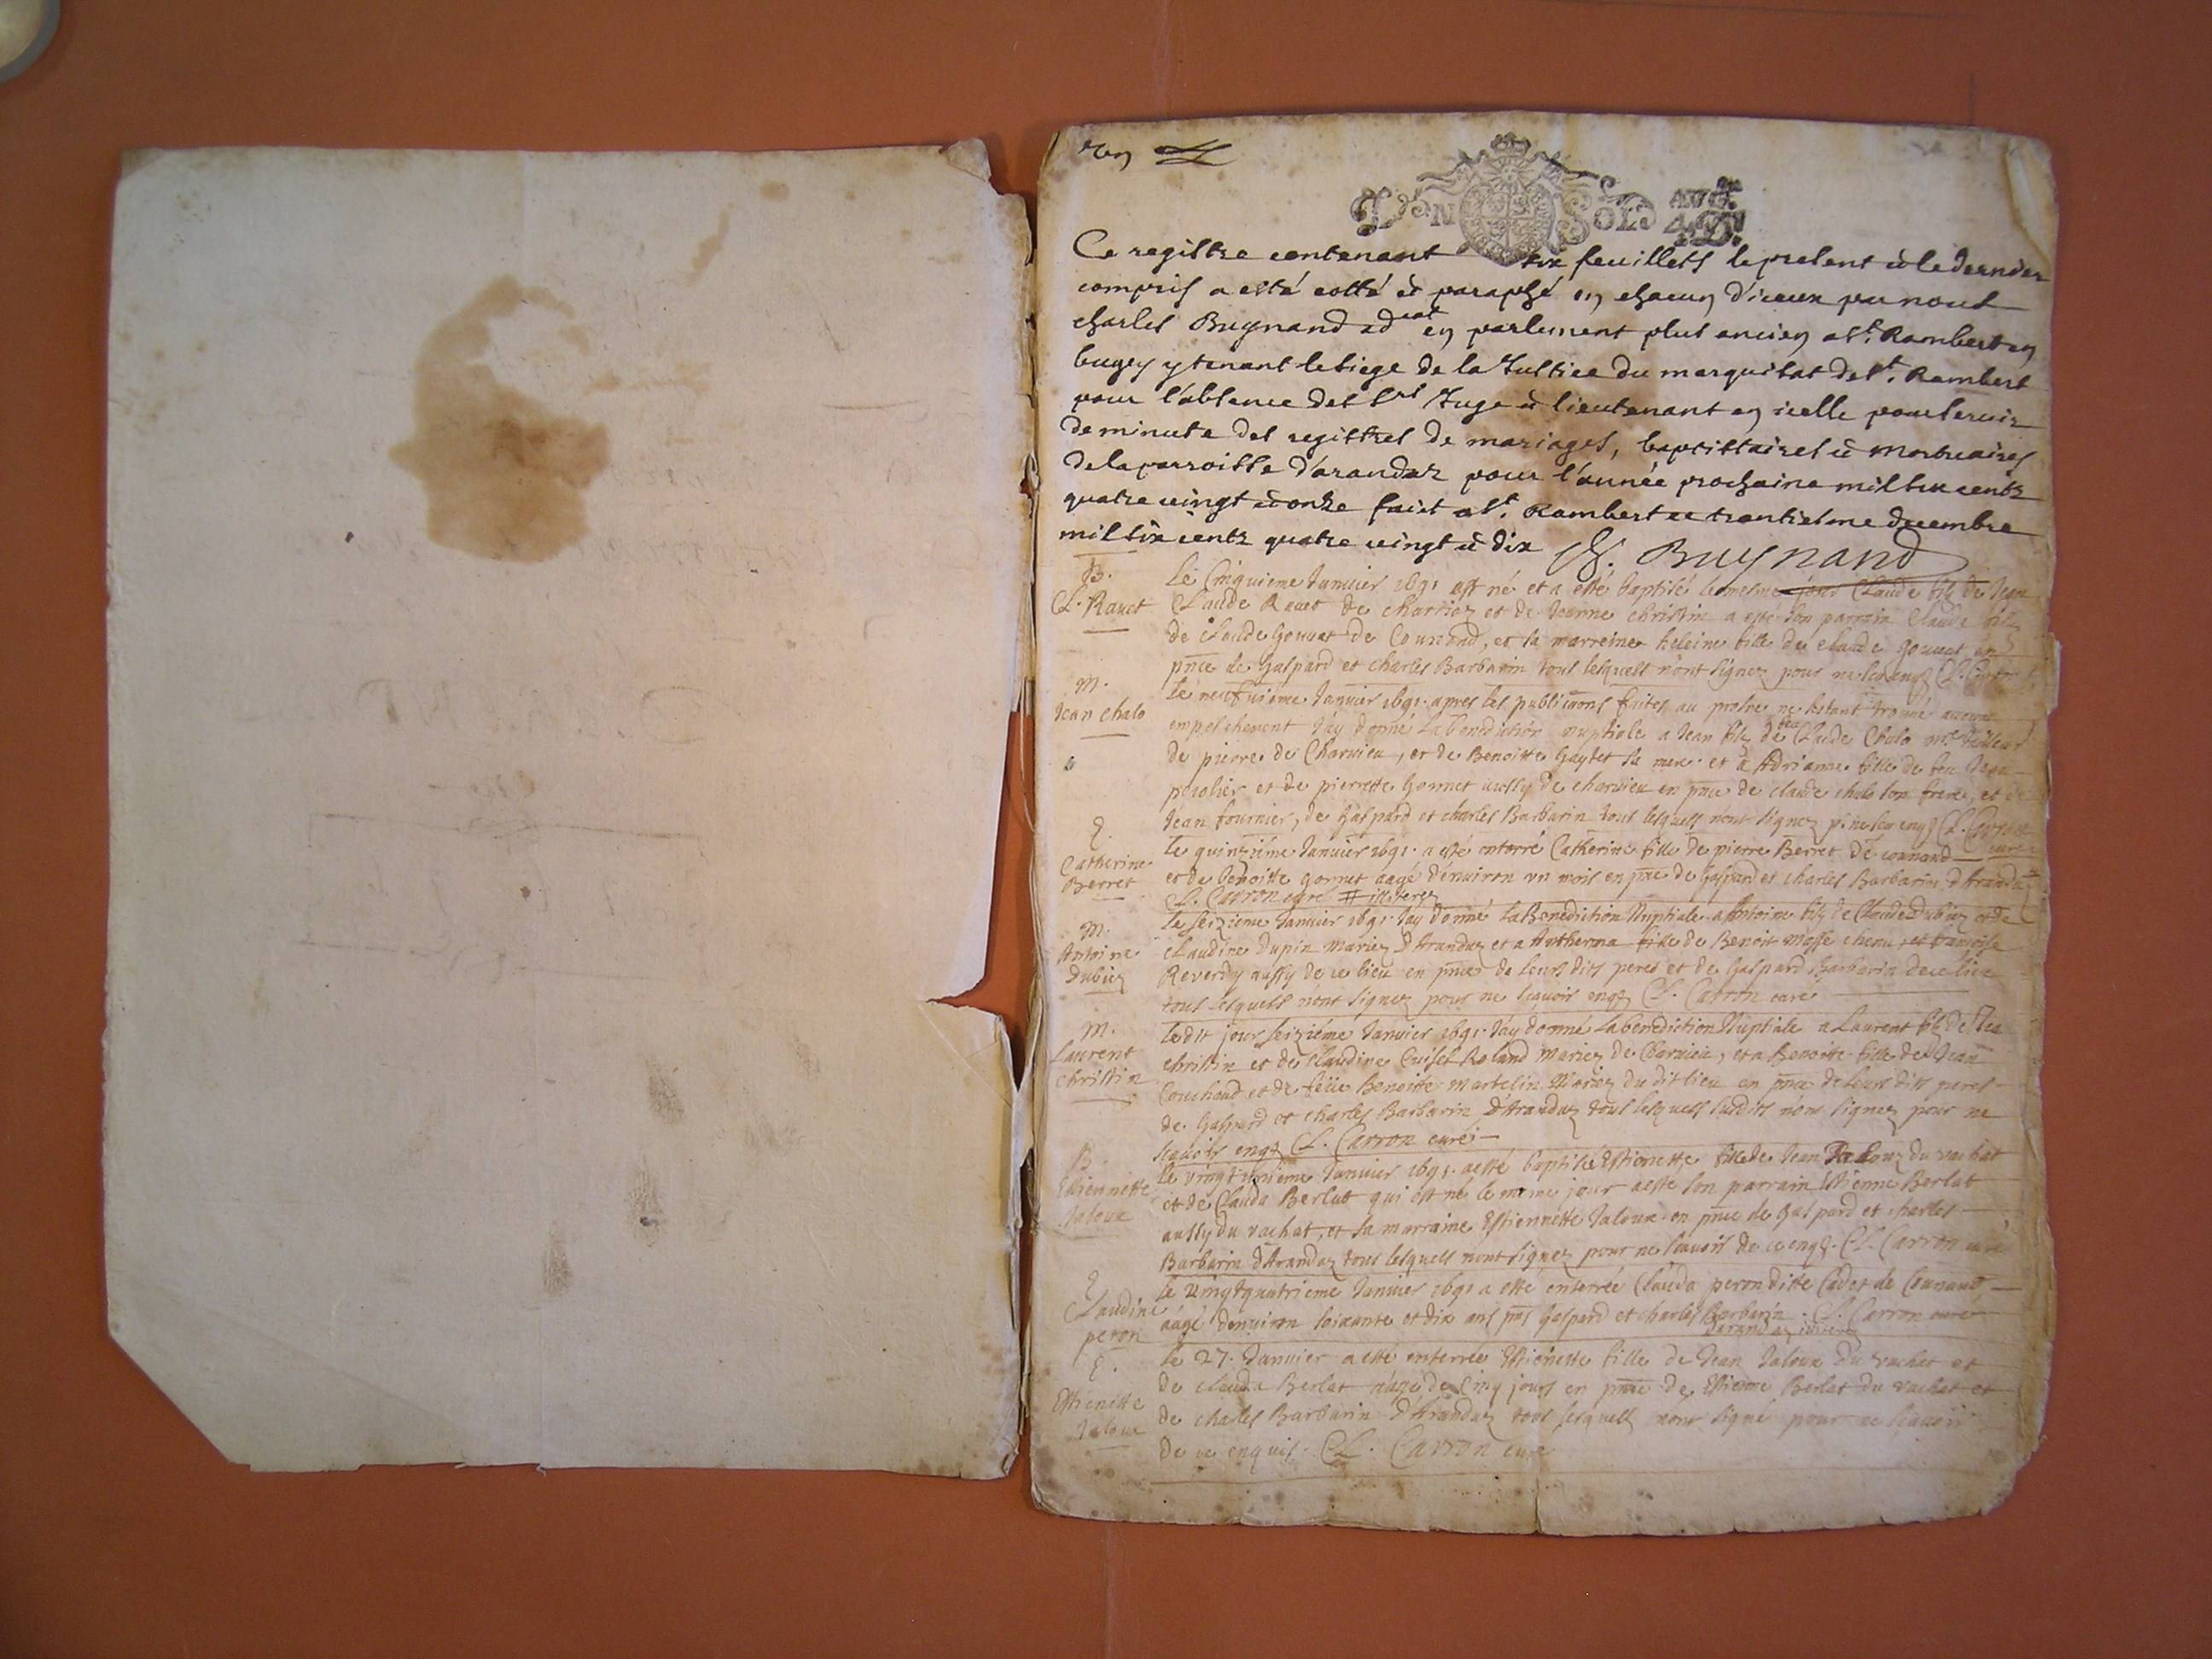 VN SOL
Ce registre contenant six feuillets le present et le dernier
compris a esté cotté et paraphé en chacun d'iceux par nous
charles Bugnand advcat en parlement plus ancien a St. Rambert en
bugey y tenant le siege de la Justice du marquisat de St. Rambert
pour l'absence des Srs Juge et lieutenant en icelle pour servir
de minute des registres de mariages, baptistaires et mortuaires
de la parroisse d'arandaz pour l'année prochaine mil six centz
quatre vingt et onze faict a St. Rambert ce trantiesme decembre
mil six centz quatre vingt et dix Ch. Bugnand
B.
Cl. Ravet
Le Cinquieme Janvier 1691 est né et a esté baptisé le mesme jour Claude filz de Jean
Claude Ravet de et de Jeanne christin a esté son parrain Claude filz
de Claude Gouvat de Counand, et sa marreine heleine fille de claude gouvat en
pnce de Gaspard et charles Barbarin tous lesquels n'ont signez pour ne
M.
Jean chalo
le neufvieme Janvier 1691 apres les publicaons faites au prosne ne s'estant trouvé aucun
empeschement J'ay donné la benediction nuptiale a Jean filz de feu Claude Chalo mre tailleur
de pierre de Charvieu, et de Benoitte Gaytet sa mere et a Adrianne fille de feu Jean
perolier et de pierrette Gonnet aussy de charvieu en pnce de claude chalo son frere, et de
Jean fournier, de Gaspard et charles Barbarin tous lesquels n'ont signez Cl. Carron
curé
E.
Catherine
Berret
le quinzième Janvier 1691 a esté enterré Catherine fille de pierre Berret de counand
et de benoitte gonnet aagé d'environ un mois en pnce de Gaspard et charles Barbarin d'Arandaz
Cl. Carron curé # illiterez
M.
Antoine
Dubiez
le seizieme Janvier 1691 J'ay donné La Benediction Nuptiale a Antoine filz de Claude Dubiez et de
claudine Dupin mariez d'Arandaz et a Antherma fille de Benoit chenu, et françoise
Reverdy aussy de ce lieu en pnce de leurs dits peres et de Gaspard Barbarin de ce lieu
tous lesquels n'ont signez pour ne scavoir enqz Cl. Carron curé
M.
Laurent
christin
le dit jour seiziéme Janvier 1691 J'ay donné La benediction Nuptiale a Laurent filz de Jean
christin et de claudine Roland mariez de Charvieu, et a Benoitte fille de Jean
Couchoud et de feüe Benoitte martelin Mariez du dit lieu en pnce de leurs dits peres
de Gaspard et charles Barbarin d'Arandaz tous lesquels susdits n'ont signez pour ne
scavoir enqz Cl. Carron curé
B.
Estiennette
Jaloux
le Janvier 1691 a esté baptisée Estiennette fille de Jean Jaloux du vachat
et de Clauda Berlat qui est né le meme jour a esté son parrain Estienne Berlat
aussy du vachat, et sa marraine Estiennette Jaloux en pnce de Gaspard et charles
Barbarin d'Arandaz tous lesquels n'ont signez pour ne scavoir de ce enqz. Cl. Carron curé
E
Claudine
peron
le vingtquatrieme Janvier 1691 a esté enterrée Clauda peron ditte Cadet de Counand
aagé d'environ soixante et dix ans pns Gaspard et charles Barbarin Cl. Carron curé
d'arandaz
E.
Estienette
Jaloux
le 27. Janvier a esté enterrée Estienette fille de Jean Jaloux du vachat et
de clauda Berlat aagé de Cinq jours en pnce de Estienne Berlat du vachat et
de charles Barbarin d'Arandaz tous lesquels n'ont signé pour ne scavoir
de ce enquis. Cl. Carron curé